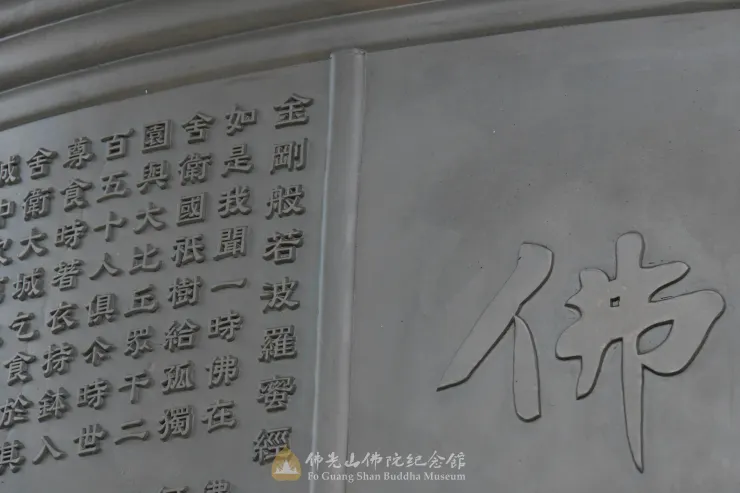 佛
金剛般若波羅蜜經
如是我聞一時佛在
舍衛國祇樹給孤獨
園與大比丘眾千二
百五十人俱尒時世
尊食時著衣持鉢入
舍衛大城乞食於其
城中次
佛光山佛陀紀念館
Fo Guang Shan Buddha Museum